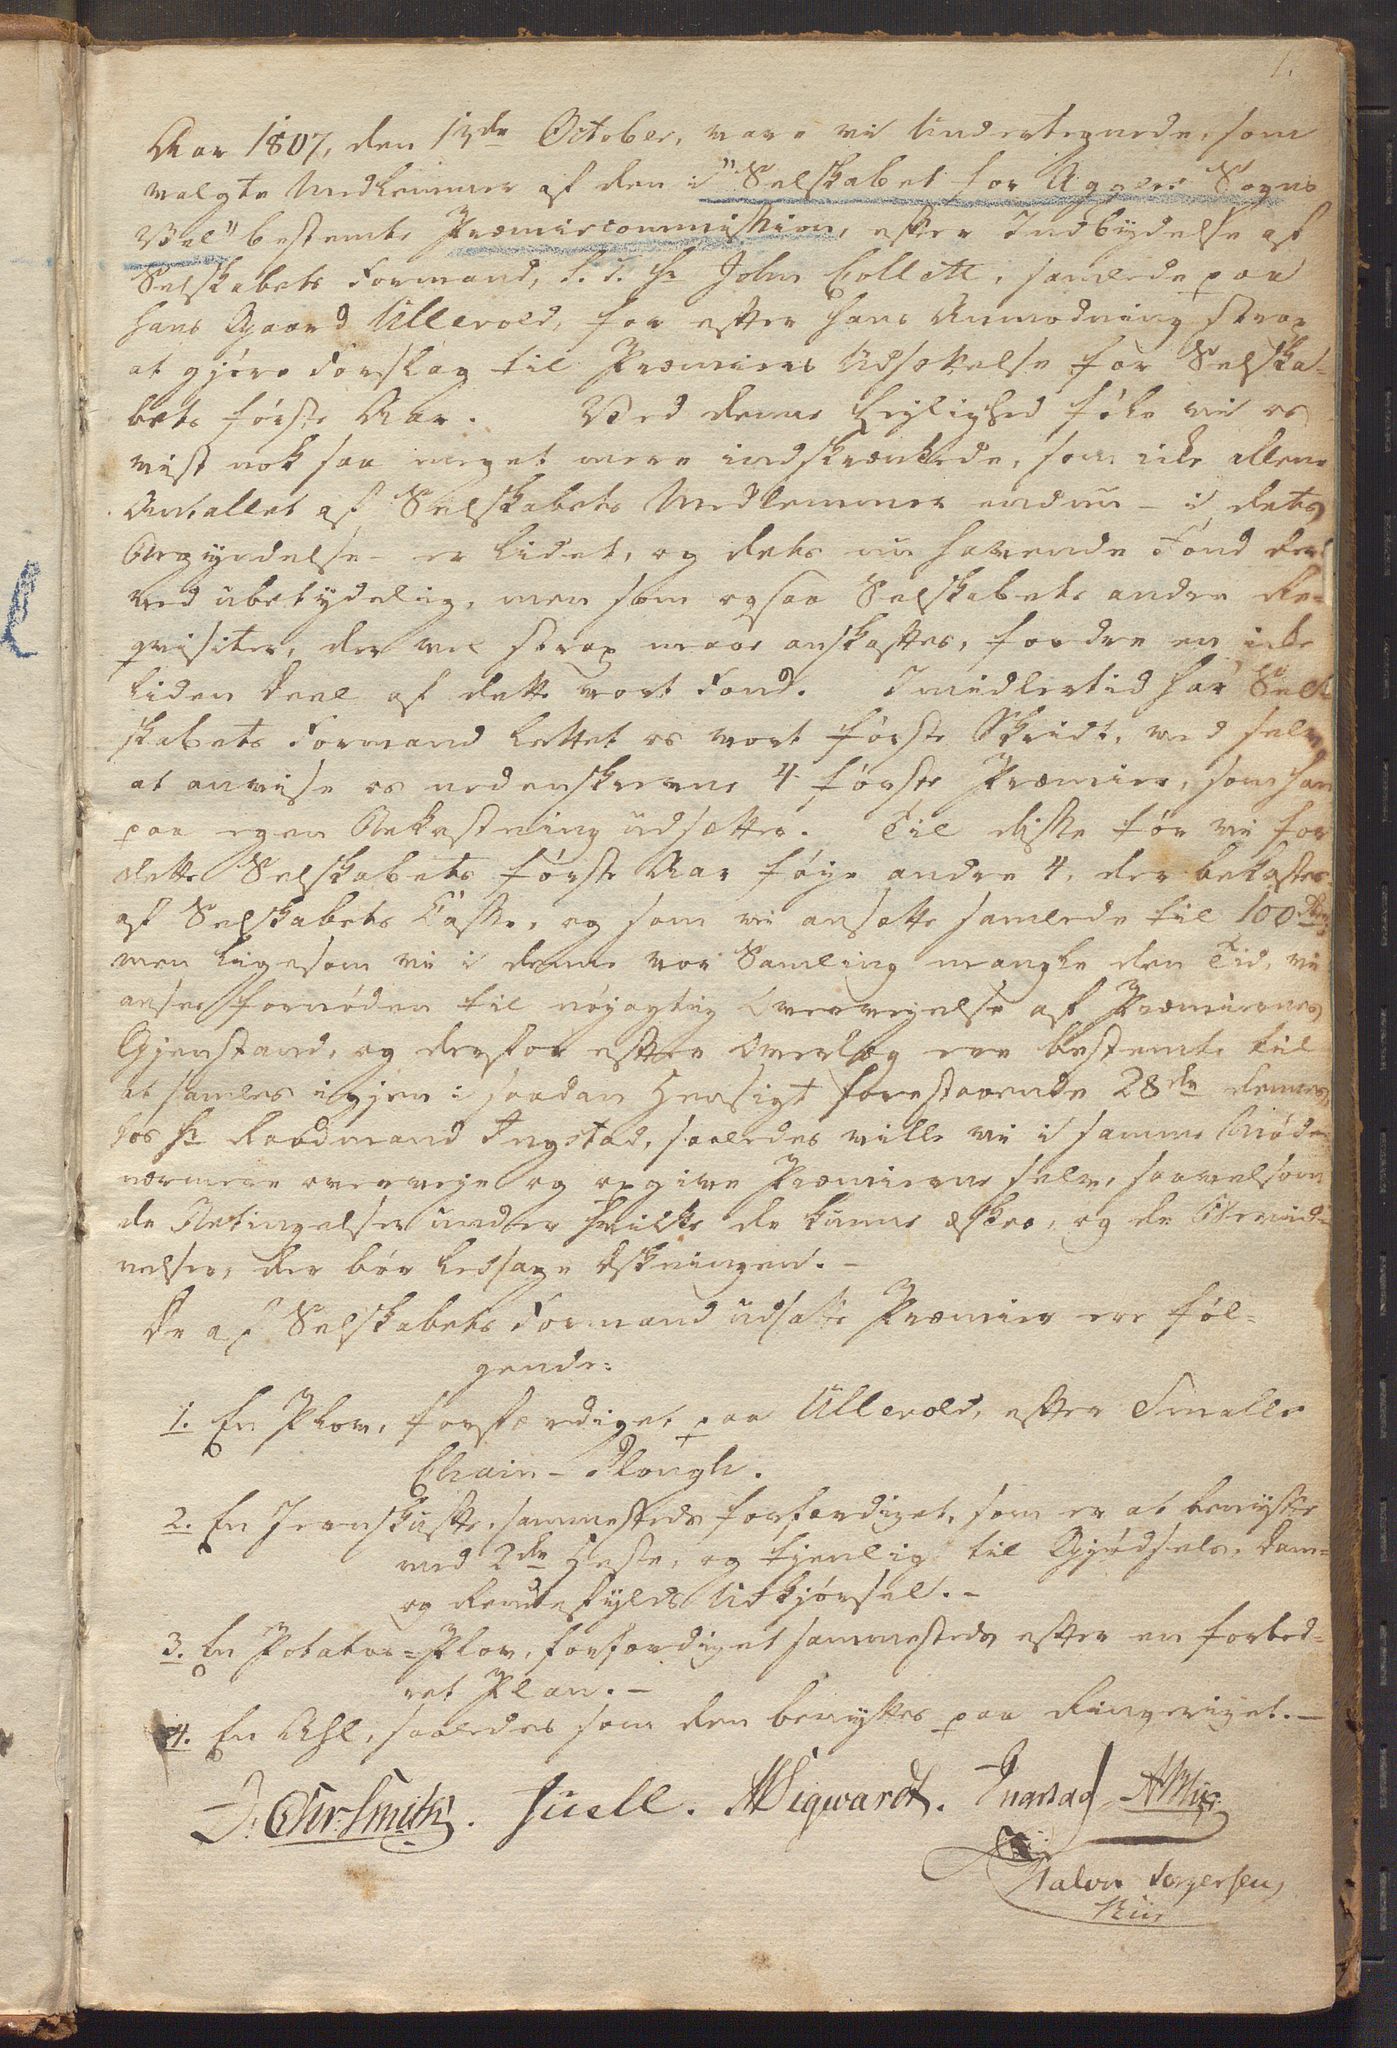 1.
Aar 1807, den 13de October, vare vi Undertegnede, som
valgte Medlemmer af den i "Selskabet for Aggers Sogns
Vel" bestemte Præmiecommission, efter Indbydelse af
Selskabets Formand, S. T. Hr John Collett, samlede paa
hans Gaard Ullevold, for efter hans Anmodning strax
at gjøre Forslag til Præmiers Udsættelse for Selska-
bets første Aar. Ved denne Leylighed føle vi os
vist nok saa meget mere indskrænkede, som ikke allene
Antallet af Selskabets Medlemmer endnu - i dets
Begyndelse - er lidet, og dets nu havende Fond der-
ved ubetydelig, men som ogsaa Selskabets andre Re-
qvisiter, der vel strax maae anskaffes, fordre en ikke
liden Deel af dette vort Fond. Imidlertid har Sel-
skabets Formand lettet os vort første Skridt, ved selv
at anvise os nedenskrevne 4 første Præmier, som han
paa egen Bekostning udsætter. Til disse tør vi for
dette Selskabets første Aar føye andre 4, der bekostes
af Selskabets Casse, og som vi ansætte samlede til 100 rdlr,
men ligesom vi i denne vor Samling mangle den Tid, vi
ansee fornøden til nøyagtig Overveyelse af Præmiernes
Gjenstand, og derfor efter Overlæg ere bestemte til
at samles igjen i saadan Hensigt forestaaende 28de dennes,
hos Hr Raadmand Ingstad, saaledes ville vi i samme Møde
nærmere overveye og opgive Præmierne selv, saavelsom
de Betingelser under hvilke de kunne æskes, og de Bevid-
nelser, der bør ledsage Æskningen. -
De af Selskabets Formand udsatte Præmier ere føl-
gende:
1. En Plov, forfærdiget paa Ullevold, efter Smalls
Chain-Plough.
2. En Jernskuffe, sammesteds forfærdiget, som er at benytte
med 2de Heste, og tjenlig til Gjødsels, Dam-
og Rendefylds Udkjørsel. -
3. En Potatos-Plov, forfærdiget sammesteds efter en forbed-
ret Plan. -
4. En Ahl, saaledes som den benyttes paa Ringeriget. -
J. Chr. Smith. Juell. N Sigwardt. Ingstad
Halvor Torgersen